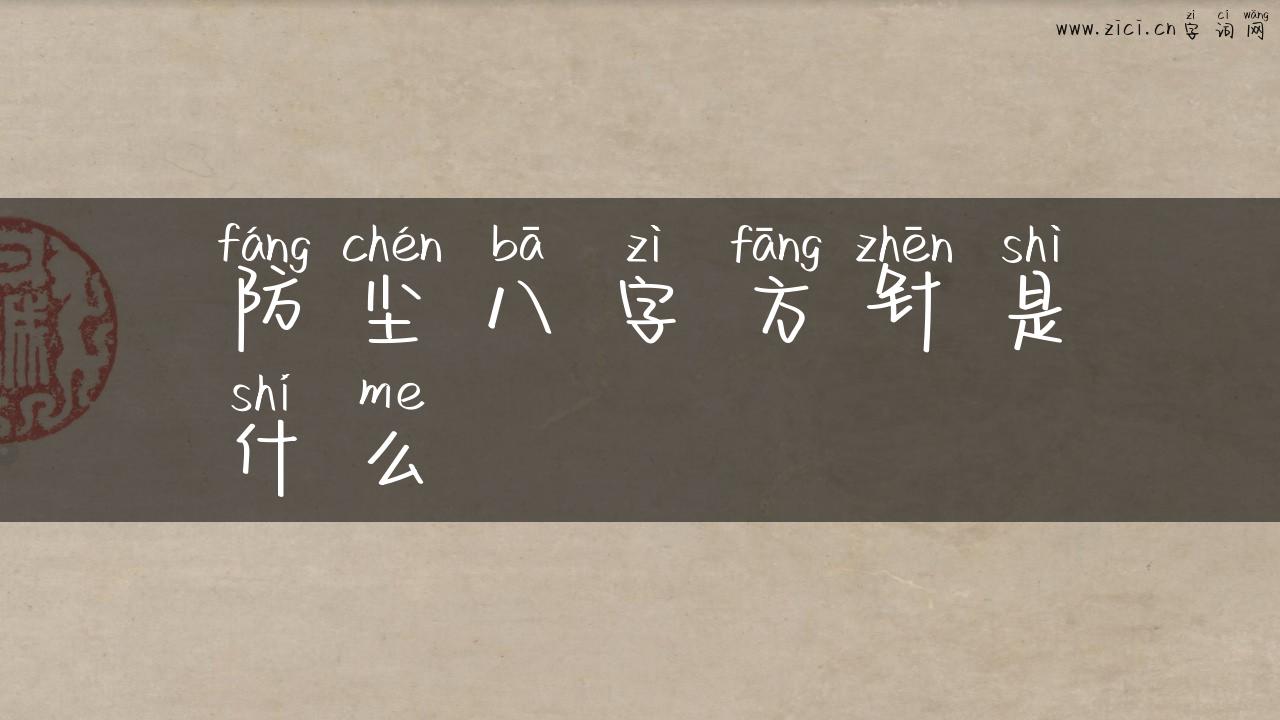 zì cí wǎng
www.zici.cn 字 词 网
fáng chén bā zì fāng zhēn shì
防 尘 八 字 方 针 是
shí me
什 么